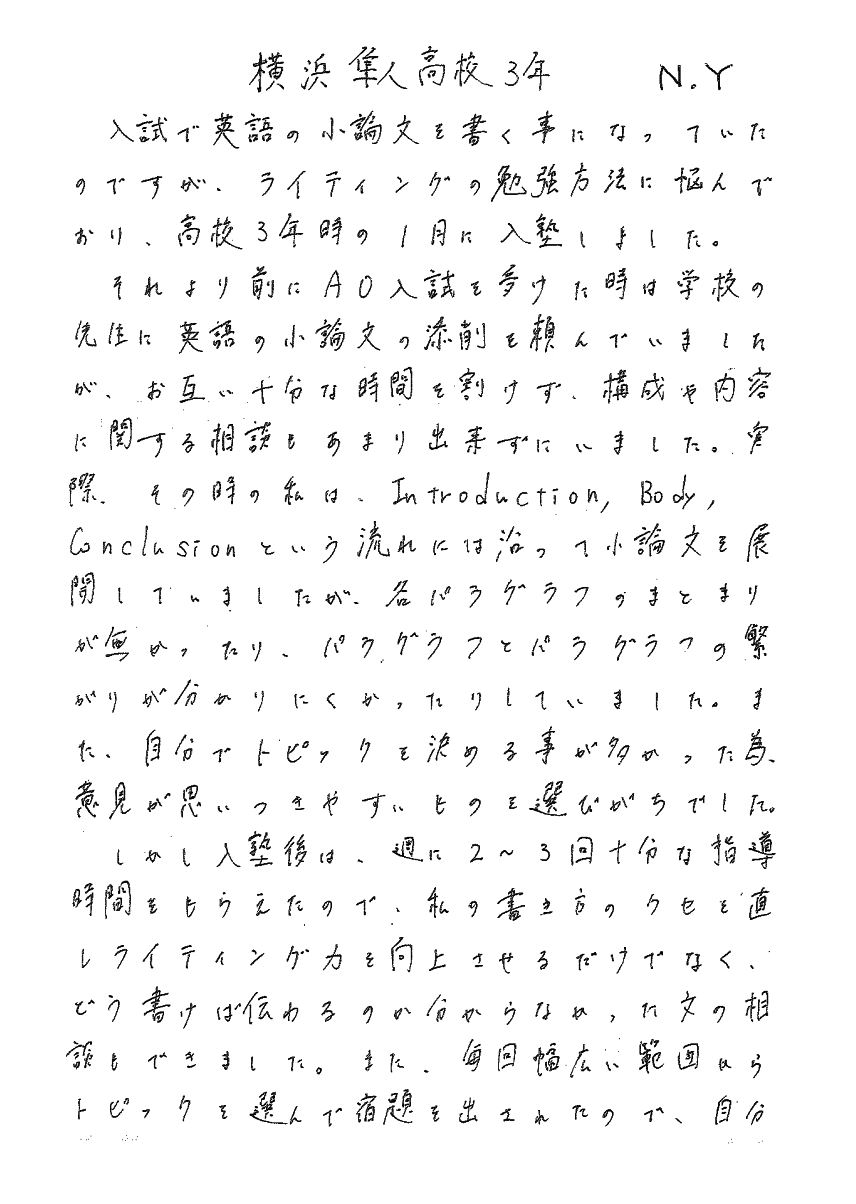 横浜隼人高校3年 N.Y
入試で英語の小論文を書く事になっていた
のですが、ライティングの勉強方法に悩んで
おり、高校3年時の1月に入塾しました。
それより前にAO入試を受けた時は学校の
先生に英語の小論文の添削を頼んでいました
が、お互い十分な時間を割けず、構成や内容
に関する相談もあまり出来ずにいました。実
際、その時の私は、Introduction, Body,
Conclusionという流れには沿って小論文を展
開していましたが、各パラグラフのまとまり
が無かったり、パラグラフとパラグラフの繋
がりが分かりにくかったりしていました。ま
た、自分でトピックを決める事が多かった為、
意見が思いつきやすいものを選びがちでした。
しかし入塾後は、週に2~3回十分な指導
時間をもらえたので、私の書き方のクセを直
しライティング力を向上させるだけでなく、
どう書けば伝わるのか分からなかった文の相
談もできました。また、毎回幅広い範囲から
トピックを選んで宿題を出されたので、自分